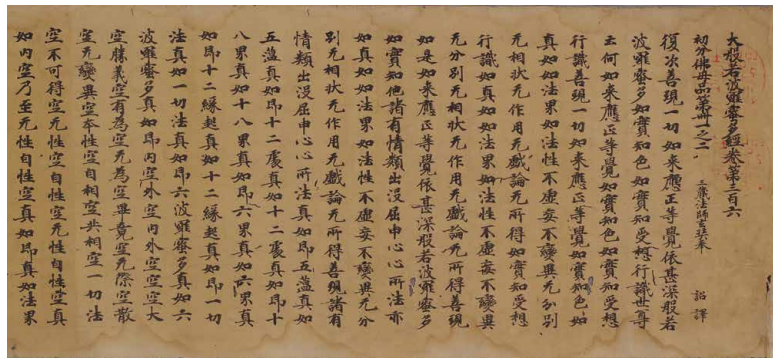 大般若波羅蜜多經卷第三百六
初分佛母品第卌一之二　三藏法師玄奘奉　詔譯
復次善現一切如來應正等覺依甚深般若
波羅蜜多如實知色如實知受想行識世尊
云何如來應正等覺如實知色如實知受想
行識善現一切如來應正等覺如實知色如
真如如法界如法性不虛妄不變異无分別
无相狀无作用无戲論无所得如實知受想
行識如真如如法界如法性不虛妄不變異
无分別无相狀无作用无戲論无所得善現
如是如來應正等覺依甚深般若波羅蜜多
如實知他諸有情類出沒屈申心心所法亦
如真如如法界如法性不虛妄不變異无分
別无相狀无作用无戲論无所得善現諸有
情類出沒屈申心心所法真如即五蘊真如
五蘊真如即十二處真如十二處真如即十
八界真如十八界真如即六界真如六界真
如即十二緣起真如十二緣起真如即一切
法真如一切法真如即六波羅蜜多真如六
波羅蜜多真如即內空外空內外空空空大
空勝義空有為空无為空畢竟空无際空散
空无變異空本性空自相空共相空一切法
空不可得空无性空自性空无性自性空真
如內空乃至无性自性空真如即真如法界